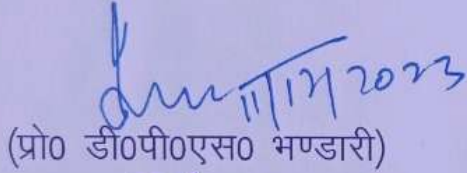 11/12/2023
(प्रो0 डी0पी0एस0 भण्डारी)